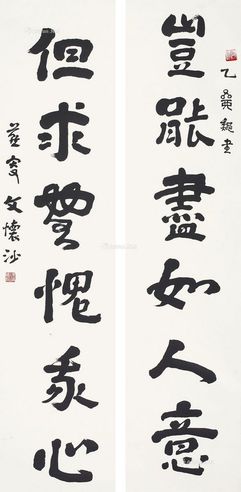 豈能盡如人意
但求無愧我心
燕叟文懷沙